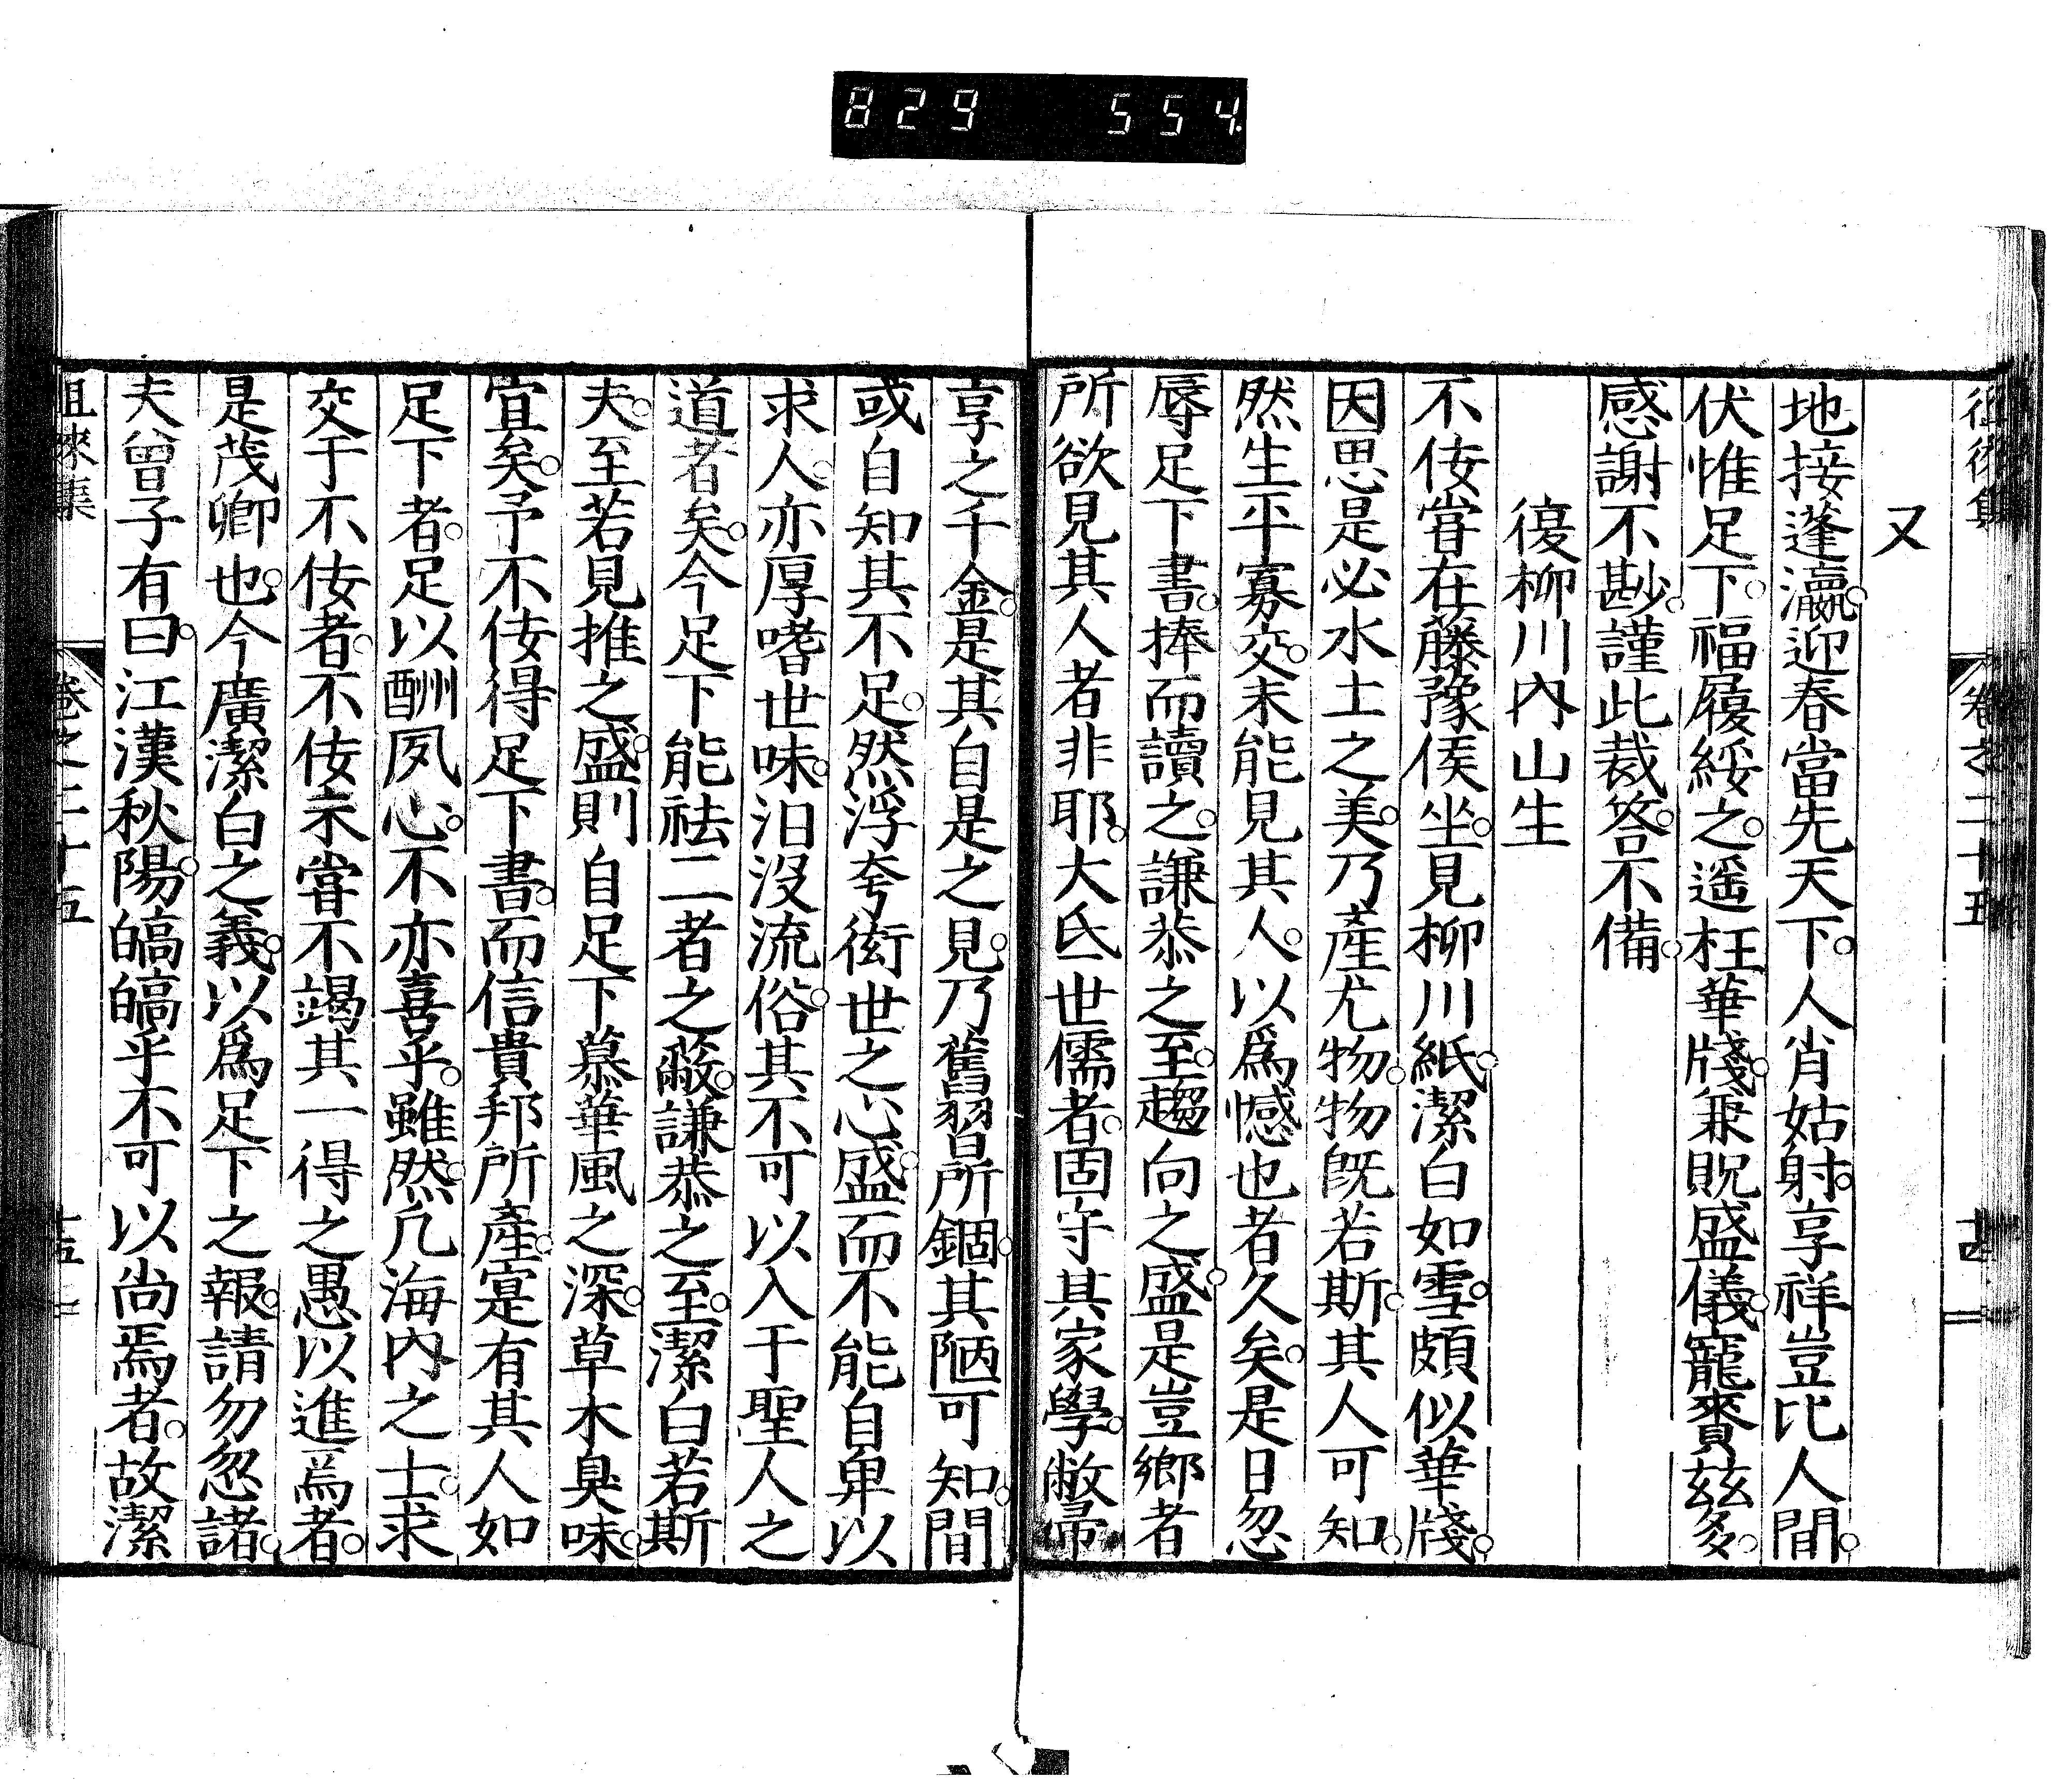 829 554
徂徠集 卷之二十五 十四
又
地接蓬瀛。迎春當先天下。人肖姑射。享祥豈比人間。
伏惟足下。福履綏之。遥枉華牋。兼貺盛儀。寵賚玆多。
感謝不尠。謹此裁答。不備。
復柳川內山生
不佞甞在藤豫侯坐。見柳川紙。潔白如雪。頗似華牋。
因思是必水土之美。乃產尤物。物旣若斯。其人可知。
然生平寡交。未能見其人。以爲憾也者久矣。是日忽
辱足下書。捧而讀之。謙恭之至。趨向之盛。是豈鄉者
所欲見其人者非耶。大氐世儒者。固守其家學。敝帚
享之千金。是其自是之見。乃舊習所錮。其陋可知。間
或自知其不足。然浮夸衒世之心盛。而不能自卑以
求人。亦厚嗜世味。汨沒流俗。其不可以入于聖人之
道者矣。今足下能祛二者之蔽。謙恭之至。潔白若斯
夫。至若見推之盛。則自足下慕華風之深。草木臭味。
宜矣。予不佞得足下書。而信貴邦所產。寔有其人如
足下者。足以酬夙心。不亦喜乎。雖然。凢海內之士。求
交于不佞者。不佞未甞不竭其一得之愚以進焉者。
是茂卿也。今廣潔白之義。以爲足下之報。請勿忽諸。
夫曾子有曰。江漢秋陽。皜皜乎不可以尚焉者。故潔
徂徠集 卷之二十五 十五